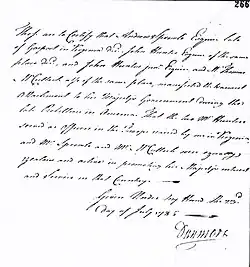 266
These are to Certify that Andrew Sprowle Esquire late
of Gosport in Virginia Decd. John Hunter Esquire of the same
place Decd. and John Hunter junr Esquire, and Mr Thomas
McCulloch also of the same place, manifested the warmest
Attachment to his Majesty's Government during the
late Rebellion in America. That the two Mr Hunters
served as Officers in the Troops raised by me in Virginia
and Mr Sprowle and Mr McCulloch were equally
Zealous and active in promoting his Majesty's interest
and Service in that Country.
Given Under my Hand the 23d
day of July 1785
Dunmore